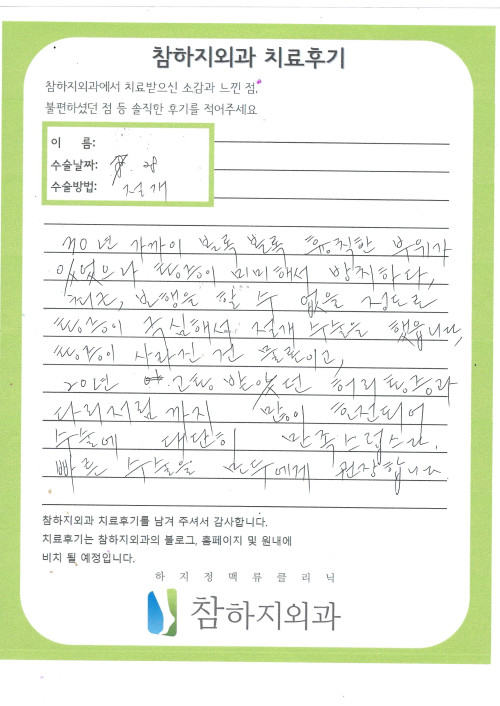 참하지외과 치료후기
참하지외과에서 치료받으신 소감과 느낀 점,
불편하셨던 점 등 솔직한 후기를 적어주세요
이 름:
수술날짜: 28
수술방법: 절개
30년 가까이 볼록볼록 흉직한 부위가
있었으나 통증이 미미해서 방치하다,
최근, 보행을 할 수 없을 정도로
통증이 극심해서 절개 수술을 했읍니다,
통증이 사라진 건 물론이고,
20년 고통 받았던 허리통증과
다리저림까지 많이 호전되어
수술에 대단히 만족스럽습니다.
빠른 수술을 모두에게 권장합니다
참하지외과 치료후기를 남겨 주셔서 감사합니다.
치료후기는 참하지외과의 블로그, 홈페이지 및 원내에
비치 될 예정입니다.
하지정맥류클리닉
참하지외과